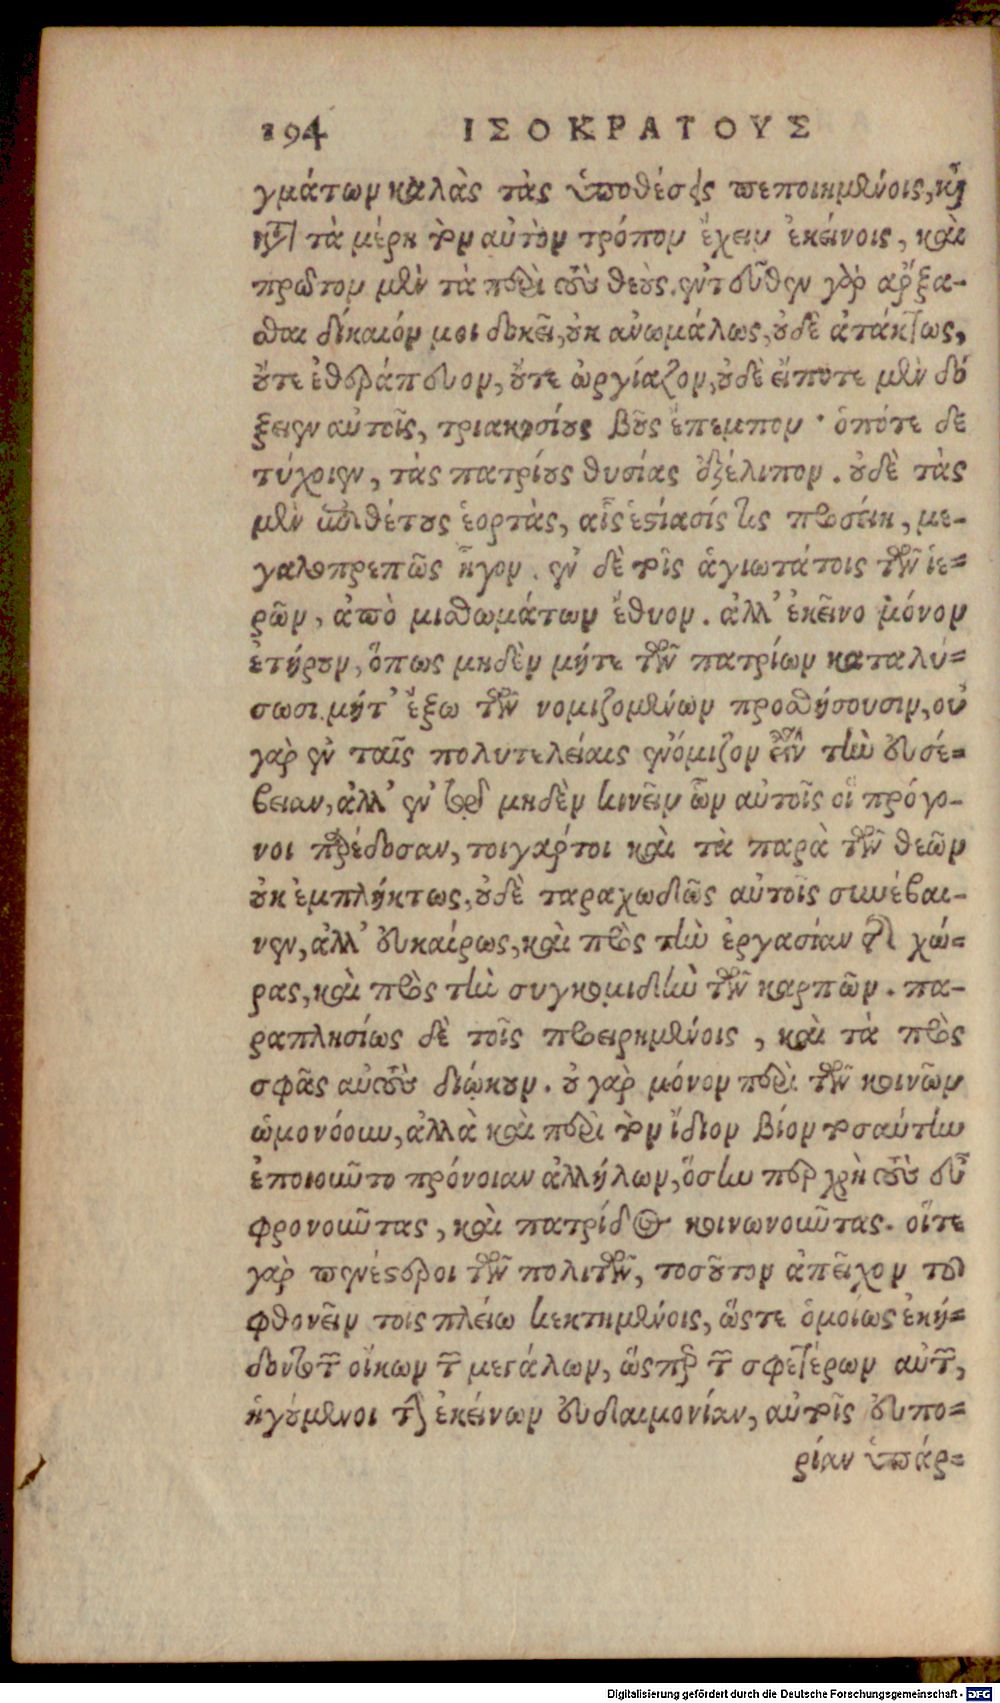 194 ΙΣΟΚΡΑΤΟΥΣ
γμάτων καλὰς τὰς ὑποθέσεις πεποιημένοις, καὶ
κατὰ τὰ μέρη τὸν αὐτὸν τρόπον ἔχειν ἐκείνοις, καὶ
πρῶτον μὲν τὰ περὶ τοὺς θεοὺς. ἐντεῦθεν γὰρ ἄρξα-
σθαι δίκαιόν μοι δοκεῖ, οὐκ ἀνωμάλως, οὐδὲ ἀτάκτως,
οὔτε ἐθεράπευον, οὔτε ὠργίαζον, οὐδὲ εἴποτε μὲν δό
ξειεν αὐτοῖς, τριακοσίους βοῦς ἔπεμπον· ὁπότε δὲ
τύχοιεν, τὰς πατρίους θυσίας ἐξέλιπον. οὐδὲ τὰς
μὲν ἐπιθέτους ἑορτὰς, αἷς ἑστίασίς τις προσείη, με-
γαλοπρεπῶς ἦγον. ἐν δὲ τοῖς ἁγιωτάτοις τῶν ἱε-
ρῶν, ἀπὸ μισθωμάτων ἔθυον. ἀλλ' ἐκεῖνο μόνον
ἐτήρουν, ὅπως μηδὲν μήτε τῶν πατρίων καταλύ-
σωσι μήτ' ἔξω τῶν νομιζομένων προσθήσουσιν, οὐ
γὰρ ἐν ταῖς πολυτελείαις ἐνόμιζον εἶναι τὴν εὐσέ-
βειαν, ἀλλ' ἐν τῷ μηδὲν κινεῖν ὧν αὐτοῖς οἱ πρόγο-
νοι παρέδοσαν, τοιγάρτοι καὶ τὰ παρὰ τῶν θεῶν
οὐκ ἐμπλήκτως, οὐδὲ ταραχωδῶς αὐτοῖς συνέβαι-
νεν, ἀλλ' εὐκαίρως, καὶ πρὸς τὴν ἐργασίαν τῆς χώ-
ρας, καὶ πρὸς τὴν συγκομιδὴν τῶν καρπῶν. πα-
ραπλησίως δὲ τοῖς προειρημένοις, καὶ τὰ πρὸς
σφᾶς αὐτοὺς διῴκουν. οὐ γὰρ μόνον περὶ τῶν κοινῶν
ὡμονόουν, ἀλλὰ καὶ περὶ τὸν ἴδιον βίον τοσαύτην
ἐποιοῦντο πρόνοιαν ἀλλήλων, ὅσην περ χρὴ τοὺς εὖ
φρονοῦντας, καὶ πατρίδος κοινωνοῦντας. οἵτε
γὰρ πενέστεροι τῶν πολιτῶν, τοσοῦτον ἀπεῖχον τοῦ
φθονεῖν τοῖς πλείω κεκτημένοις, ὥστε ὁμοίως ἐκή-
δοντο τῶν οἴκων τῶν μεγάλων, ὥσπερ τῶν σφετέρων αὐτῶν,
ἡγούμενοι τὴν ἐκείνων εὐδαιμονίαν, αὐτοῖς εὐπο-
ρίαν ὑπάρ-
Digitalisierung gefördert durch die Deutsche Forschungsgemeinschaft - DFG